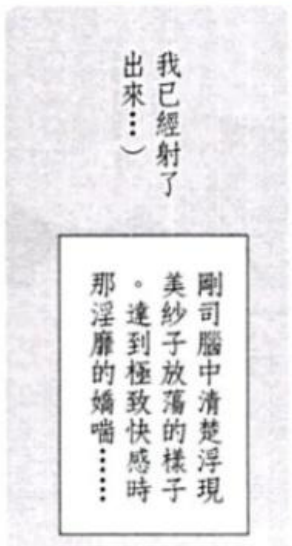 我已經射了
出來⋯）
剛司腦中清楚浮現
美紗子放蕩的樣子
。達到極致快感時
那淫靡的嬌喘⋯⋯